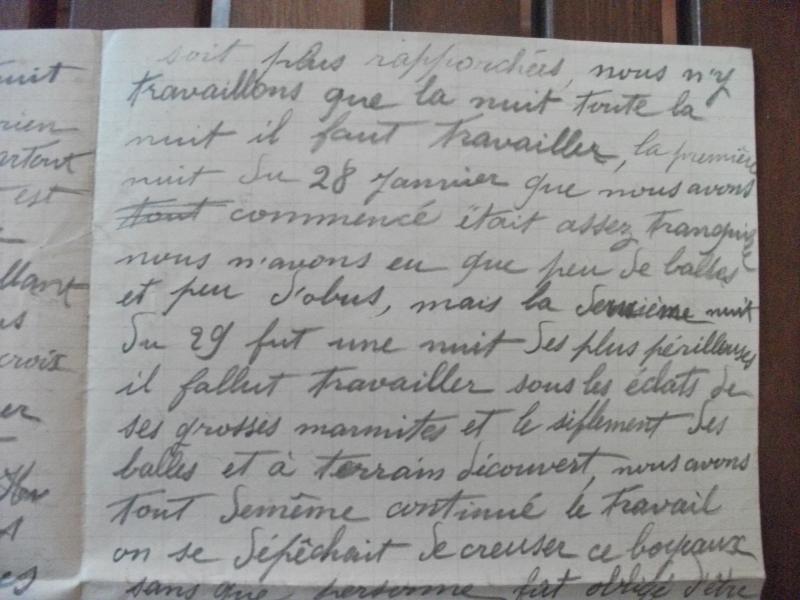 soit plus rapporchées, nous n'y
travaillons que la nuit toute la
nuit il faut travailler, la première
nuit du 28 Janvier que nous avons
tout commencé était assez tranquille
nous n'avons eu que peu de balles
et peu d'obus, mais la deuxième nuit
du 29 fut une nuit des plus périlleuses
il fallut travailler sous les éclats de
ses grosses marmites et le siflement des
balles et à terrain découvert, nous avons
tout demême continué le travail
on se dépêchait de creuser ce boyaux
sans que personne fut obligé d'être
nuit
rien
artout
est
llant
us
croix
er
es